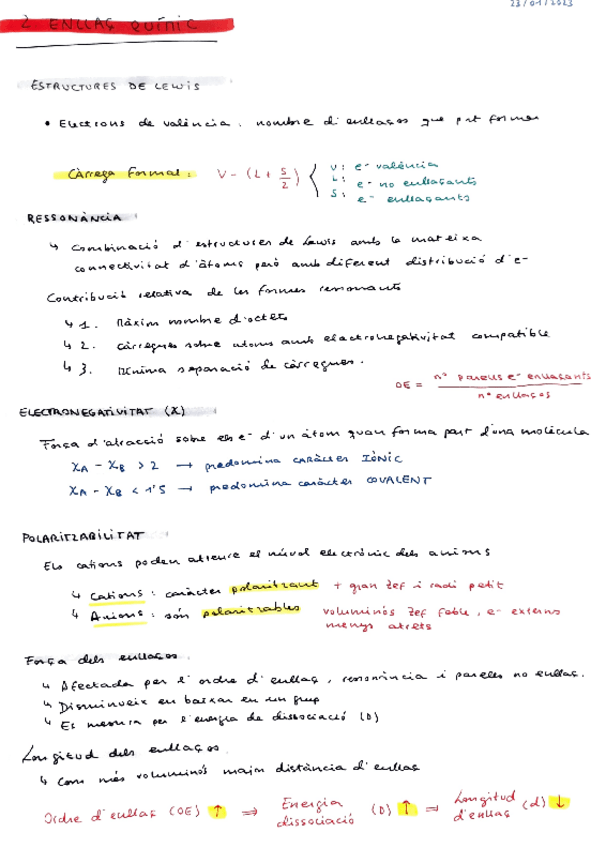 23/01/2023
2 ENLLAÇ QUÍMIC
ESTRUCTURES DE LEWIS
• Electrons de valència: nombre d'enllaços que pot formar
Càrrega formal: V - (L + S/2) { V: e- valència
L: e- no enllaçants
S: e- enllaçants
RESSONÀNCIA
↳ Combinació d'estructures de Lewis amb la mateixa
connectivitat d'àtoms però amb diferent distribució d'e-
Contribució relativa de les formes ressonants
↳ 1. Màxim nombre d'octets
↳ 2. Càrregues sobre atoms amb electronegativitat compatible
↳ 3. Mínima separació de càrregues.
OE = nº parells e- enllaçants / nº enllaços
ELECTRONEGATIVITAT (X)
Força d'atracció sobre els e- d'un àtom quan forma part d'una molècula
XA - XB > 2 → predomina CARÀCTER IÒNIC
XA - XB < 1'5 → predomina caràcter COVALENT
POLARITZABILITAT
Els cations poden atreure el núvol electrònic dels anions
↳ Cations: caràcter polaritzant + gran Zef i radi petit
↳ Anions: són polaritzables voluminós Zef feble, e- externs
menys atrets
Força dels enllaços.
↳ Afectada per l'ordre d'enllaç, ressonància i parelles no enllaç.
↳ Disminueix en baixar en un grup
↳ Es mesura per l'energia de dissociació (D)
Longitud dels enllaços.
↳ Com més voluminós major distància d'enllaç
Ordre d'enllaç (OE) ↑ ⇒ Energia dissociació (D) ↑ ⇒ Longitud d'enllaç (d) ↓